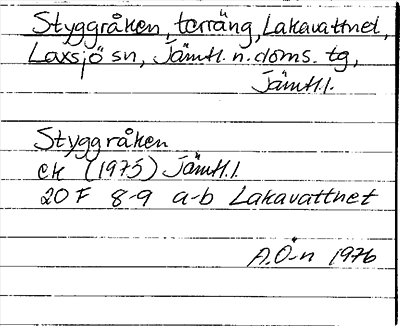 Styggråken, terräng, Lakavattnet,
Laxsjö sn, Jämtl. n. doms. tg,
Jämtl.l.
Styggråken
ek (1975) Jämtl.l
20 F 8-9 a-b Lakavattnet
A.Ö-n 1976